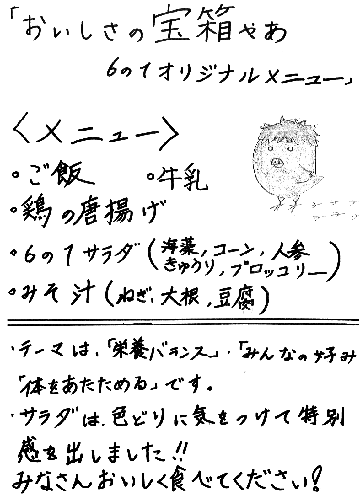 「おいしさの宝箱やぁ
6の1オリジナルメニュー」
〈メニュー〉
・ご飯 ・牛乳
・鶏の唐揚げ
・6の1サラダ(海藻,コーン,人参
きゅうり,ブロッコリー)
・みそ汁(ねぎ,大根,豆腐)
・テーマは、「栄養バランス」・「みんなの好み
「体をあたためる」です。
・サラダは、色どりに気をつけて特別
感を出しました!!
みなさんおいしく食べてください!